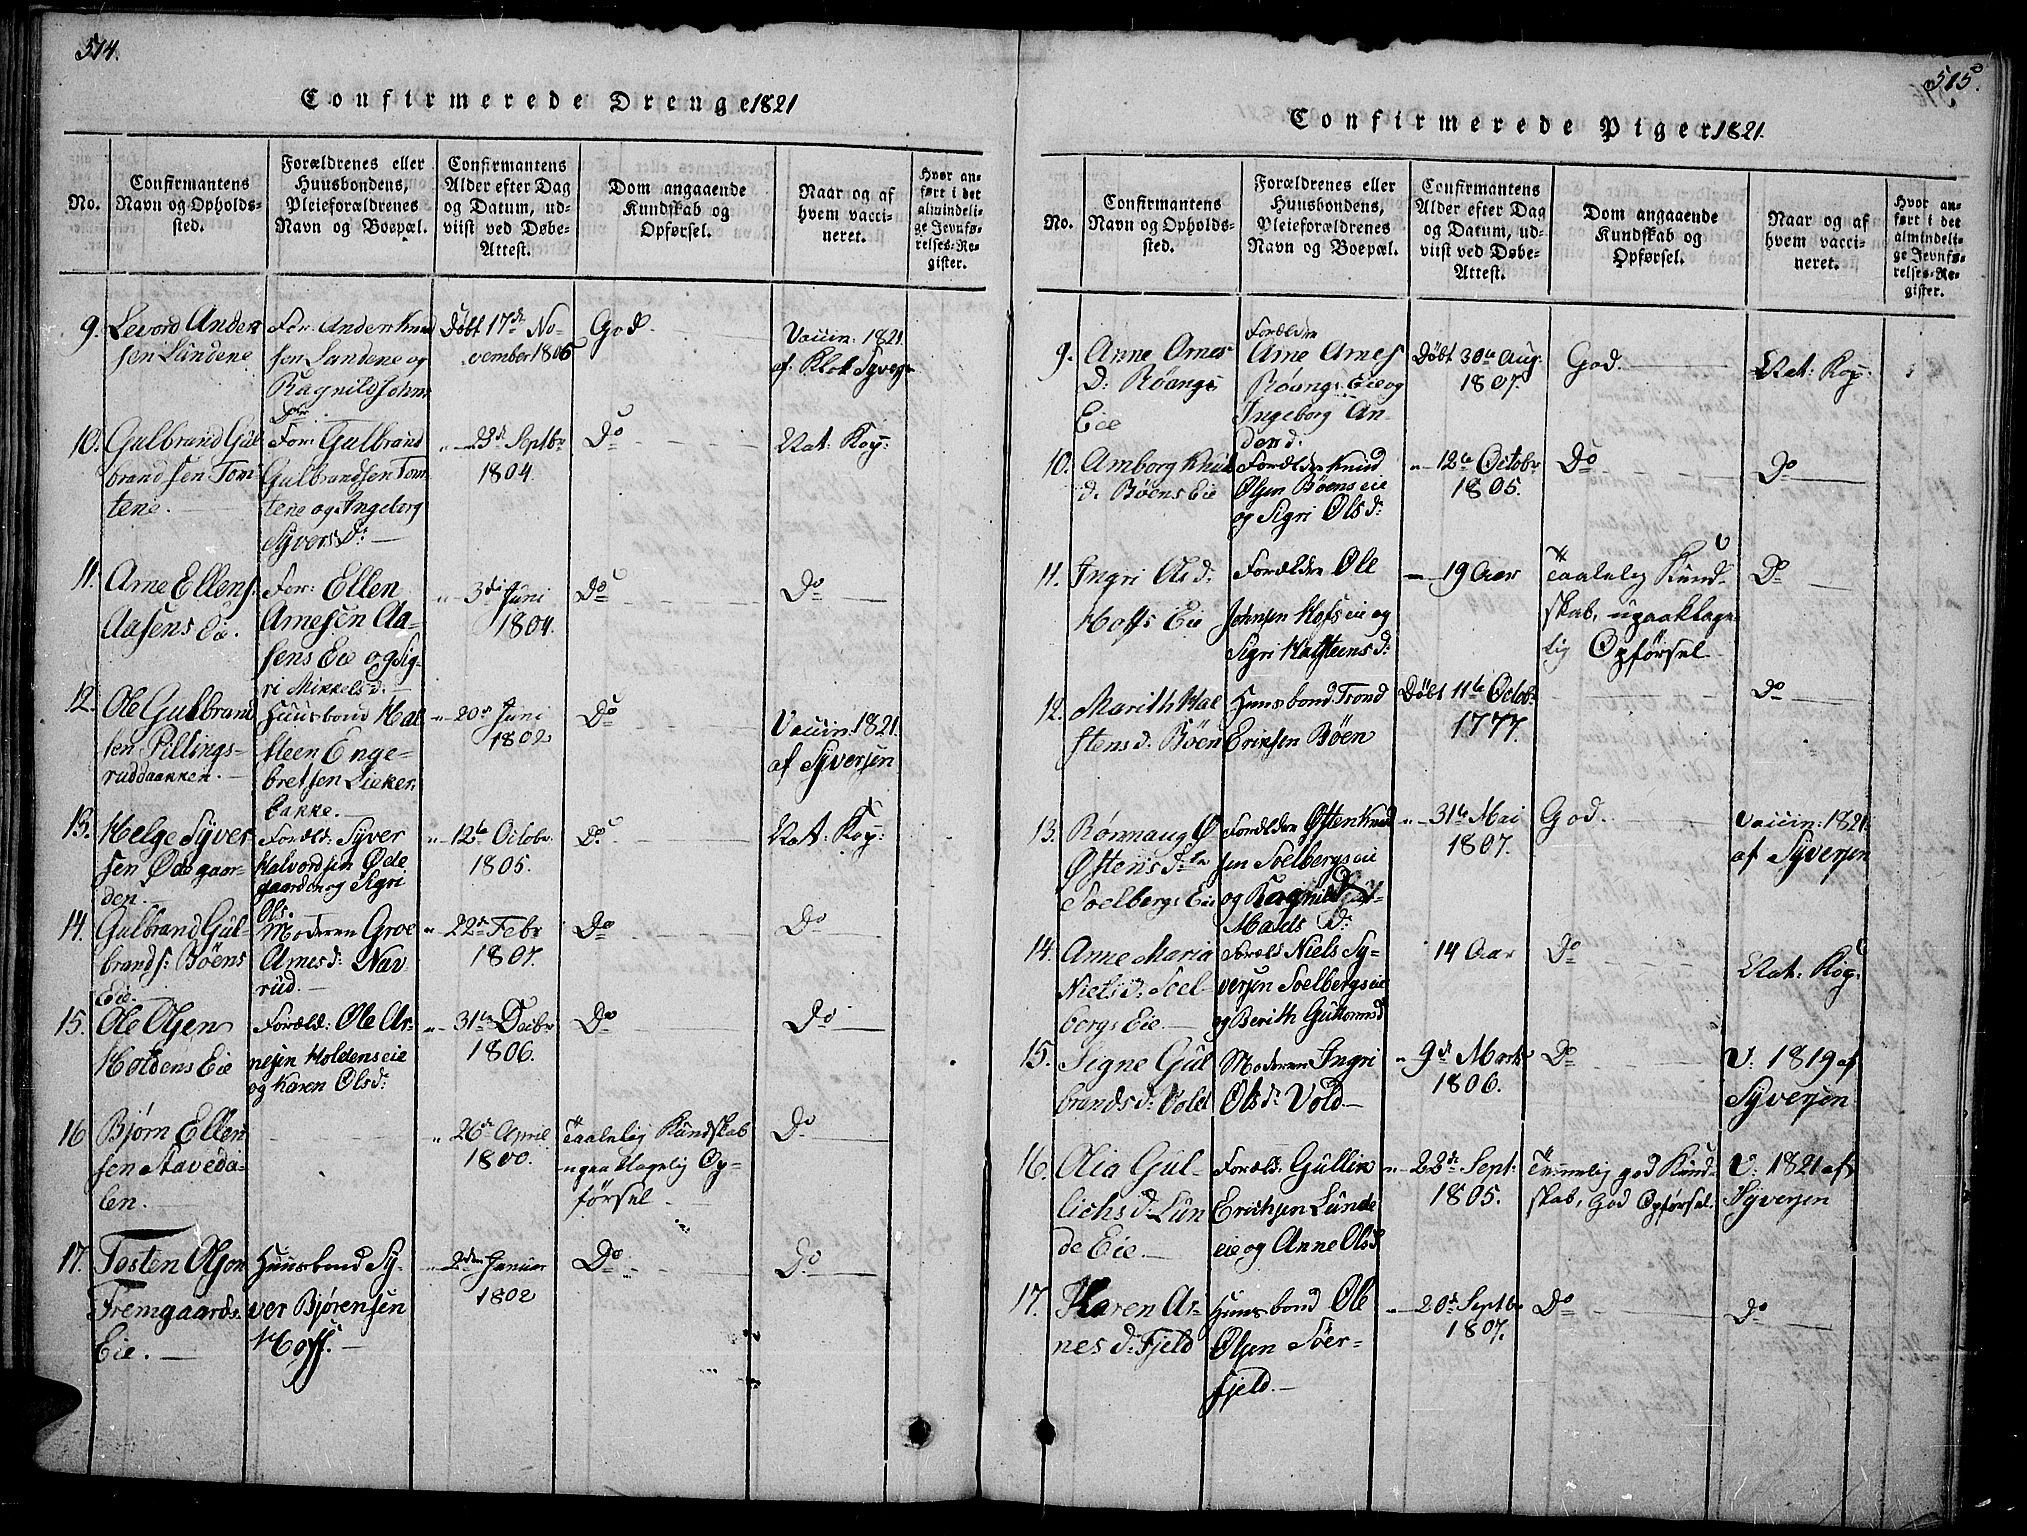 514.
Confirmerede Drenge 1821
No.
Confirmantens
Navn og Opholds-
sted.
Forældrenes eller
Huusbondens,
Pleieforældrenes
Navn og Boepæl.
Confirmantens
Alder efter Dag
og Datum, ud-
viist ved Døbe-
Attest.
Dom angaaende
Kundskab og
Opførsel.
Naar og af
hvem vacci-
neret.
Hvor an-
ført i det
almindeli-
ge Jevnfø-
relses-Re-
gister.
9. Levord Anders
sen Lundene
For: Anders Knud
sen Lundene og
Ragnild Johns
Dr.
Døbt 17de No-
vember 1805
God.
Vaccin: 1821.
af Klok Syvers
10. Gulbrand Gul
brandsen Tom-
tene.
For: Gulbrand
Gulbrandsen Tom
tene og Ingeborg
Syvers D:
" 23de Septbr
1804.
Do
Nat: Kop:
11. Arne Ellens.
Aasens Eie.
For: Ellen
Arnesen Aa-
sens Eie og Sig-
ri Mikkelsd.
" 3de Juni
1804.
Do
Do
12. Ole Gulbrand
sen Pillings-
rudbakken.
Huusbond Hal
steen Enge-
bretsen Lieker
bakke.
" 20de Juni
1802
Do
Vaccin: 1821.
af Syversen
13. Helge Syver
sen Ødegaar-
den.
Foræld: Syver
Halvordsen Øde
gaarden og Sigri
Ols.
" 12te Octobr.
1805.
Do
Nat: Kop:
14. Gulbrand Gul-
brands: Bøens
Eie.
Moderen Groe
Arnesd: Nav
rud.
" 22de Febr
1807.
Do
Do
15. Ole Olsen
Holdens Eie
Foræld: Ole Ar-
nesen Holdenseie
og Karen Olsd:
" 31te Decbr
1806.
Do
Do
16 Bjørn Ellen
sen Staveda-
len.
" 26de April
1800.
Taalelig Kundskab
upaaklagelig Op-
førsel
Do
17. Tosten Olsen
Fremgaards
Eie.
Huusbond Sy-
ver Bjørensen
Hoff.
" 2den Januar
1802
Do
Do
515.
Confirmerede Piger 1821.
No.
Confirmantens
Navn og Opholds-
sted.
Forældrenes eller
Huusbondens,
Pleieforældrenes
Navn og Boepæl.
Confirmantens
Alder efter Dag
og Datum, ud-
viist ved Døbe-
Attest.
Dom angaaende
Kundskab og
Opførsel.
Naar og af
hvem vacci-
neret.
Hvor an-
ført i det
almindeli-
ge Jevnfø-
relses-Re-
gister.
9. Anne Arnes
d: Røangs
Eie
Forældre
Arne Arnes
Røangs Eie og
Ingeborg An-
ders d:
Døbt 30te Aug:
1807.
God.
Nat: Kop:
10. Amborg Knud
d: Bøens Eie
Forældre Knud
Olsen Bøens eie
og Sigri Ols d:
" 12te Octobr
1805.
Do
Do
11. Ingri Ols d:
Hoffs Eie
Forældre Ole
Johnsen Hofs eie og
Sigri Halsteens d:
19 Aar
Taalelig Kund-
skab, upaaklage-
lig Opførsel
Do
12. Marith Hal
stens d: Bøen
Huusbond Trond
Eriksen Bøen
Døbt 11te Octobr.
1777.
Do
13. Rønnaug Ø
Østens Dtr
Soelbergs Eie
Forældre Østen Knud
sen Soelbergs eie
og Ragnild
Mads D:
" 31te Mai
1807.
God.
Vaccin: 1821.
af Syversen
14. Anne Maria
Niels d: Soel-
bergs Eie.
Foræld Niels Sy-
versen Soelbergs eie
og Berith Guttormsd
14 Aar
Do
Nat: Kop:
15. Signe Gul
brands d: Vold
Moderen Ingri
Olsd: Vold
" 9de Marts
1806.
Do
V: 1819 af
Syversen
16. Olia Gul-
lichs d: Lun
de Eie.
Foræld: Gullik
Erichsen Lunde
eie og Anne Olsd
" 22de Sept:
1805.
Temmelig god Kund-
skab, God Opførsel.
V: 1821 af
Syversen
17. Karen Ar-
nes d: Fjeld
Huusbond Ole
Olsen Søer-
fjeld.
" 20de Septbr
1807.
Do
Do